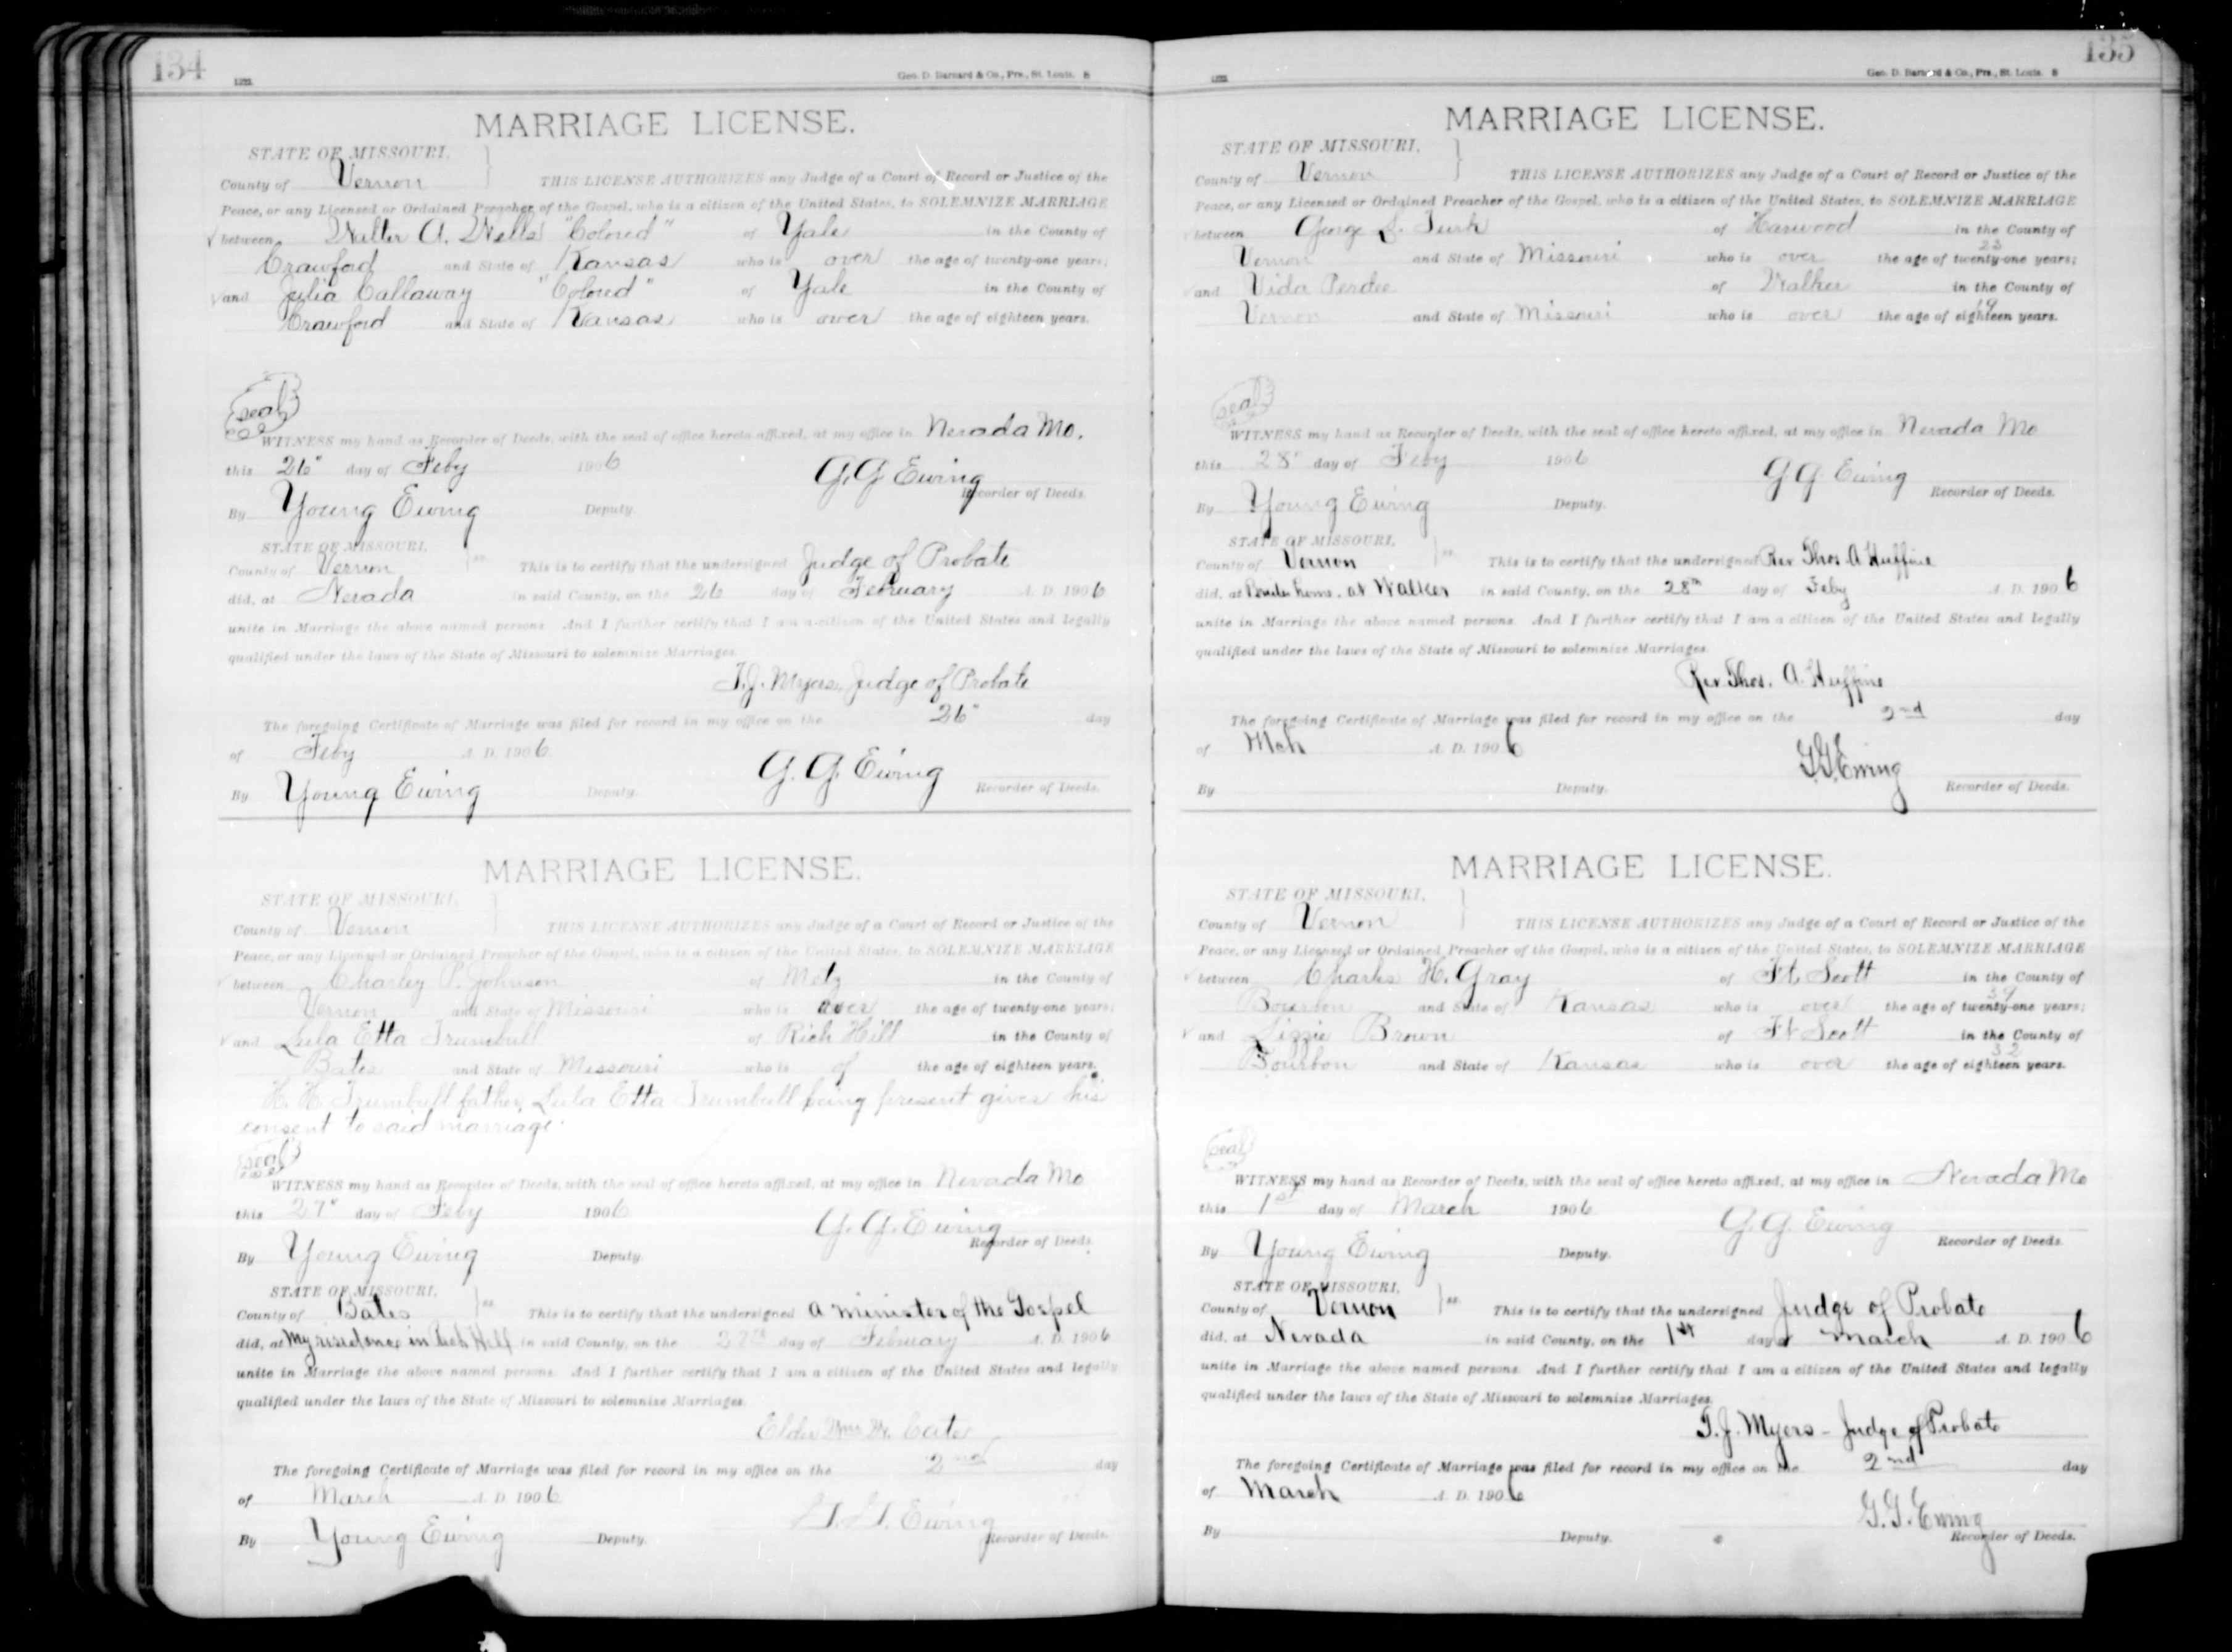 134
1233.
Geo. D. Barnard & Co., Prs., St. Louis. 8
MARRIAGE LICENSE.
STATE OF MISSOURI,
County of Vernon THIS LICENSE AUTHORIZES any Judge of a Court of Record or Justice of the
Peace, or any Licensed or Ordained Preacher of the Gospel, who is a citizen of the United States, to SOLEMNIZE MARRIAGE
between Walter A. Wells "Colored" of Yale in the County of
Crawford and State of Kansas who is over the age of twenty-one years;
and Julia Callaway "Colored" of Yale in the County of
Crawford and State of Kansas who is over the age of eighteen years.
seal
WITNESS my hand as Recorder of Deeds, with the seal of office hereto affixed, at my office in Nevada Mo.
this 26" day of Feby 1906
G. G Ewing
Recorder of Deeds.
By Young Ewing Deputy.
STATE OF MISSOURI,
County of Vernon ss. This is to certify that the undersigned Judge of Probate
did, at Nevada in said County, on the 26 day of February A. D. 1906
unite in Marriage the above named persons. And I further certify that I am a citizen of the United States and legally
qualified under the laws of the State of Missouri to solemnize Marriages.
T. J. Myers, Judge of Probate
The foregoing Certificate of Marriage was filed for record in my office on the 26" day
of Feby A. D. 1906.
By Young Ewing Deputy. G. G. Ewing Recorder of Deeds.
MARRIAGE LICENSE.
STATE OF MISSOURI,
County of Vernon THIS LICENSE AUTHORIZES any Judge of a Court of Record or Justice of the
Peace, or any Licensed or Ordained Preacher of the Gospel, who is a citizen of the United States, to SOLEMNIZE MARRIAGE
between Charley P. Johnson of Metz in the County of
Vernon and State of Missouri who is over the age of twenty-one years;
and Lula Etta Trumbull of Rich Hill in the County of
Bates and State of Missouri who is of the age of eighteen years.
H. H. Trumbull father, Lula Etta Trumbull being present gives his
consent to said marriage.
seal
WITNESS my hand as Recorder of Deeds, with the seal of office hereto affixed, at my office in Nevada Mo
this 27" day of Feby 1906
G. G. Ewing
Recorder of Deeds.
By Young Ewing Deputy.
STATE OF MISSOURI,
County of Bates ss. This is to certify that the undersigned a minister of the Gospel
did, at My residence in Rich Hill in said County, on the 27th day of February A. D. 1906
unite in Marriage the above named persons. And I further certify that I am a citizen of the United States and legally
qualified under the laws of the State of Missouri to solemnize Marriages.
Elder Cates
The foregoing Certificate of Marriage was filed for record in my office on the 2nd day
of March A. D. 1906
G. G. Ewing
By Young Ewing Deputy. Recorder of Deeds.
135
1233.
Geo. D. Barnard & Co., Prs., St. Louis. 8
MARRIAGE LICENSE.
STATE OF MISSOURI,
County of Vernon THIS LICENSE AUTHORIZES any Judge of a Court of Record or Justice of the
Peace, or any Licensed or Ordained Preacher of the Gospel, who is a citizen of the United States, to SOLEMNIZE MARRIAGE
between George S. Turk of Harwood in the County of
23
Vernon and State of Missouri who is over the age of twenty-one years;
and Vida Perdee of Walker in the County of
19
Vernon and State of Missouri who is over the age of eighteen years.
seal
WITNESS my hand as Recorder of Deeds, with the seal of office hereto affixed, at my office in Nevada Mo
this 28" day of Feby 1906
G G Ewing Recorder of Deeds.
By Young Ewing Deputy.
STATE OF MISSOURI,
County of Vernon ss. This is to certify that the undersigned Rev Thos. A Huffine
did, at Brides home, at Walker in said County, on the 28th day of Feby A. D. 1906
unite in Marriage the above named persons. And I further certify that I am a citizen of the United States and legally
qualified under the laws of the State of Missouri to solemnize Marriages.
Rev. Thos. A. Huffine
The foregoing Certificate of Marriage was filed for record in my office on the 2nd day
of Mch A. D. 1906
G.G. Ewing
By Deputy. Recorder of Deeds.
MARRIAGE LICENSE.
STATE OF MISSOURI,
County of Vernon THIS LICENSE AUTHORIZES any Judge of a Court of Record or Justice of the
Peace, or any Licensed or Ordained Preacher of the Gospel, who is a citizen of the United States, to SOLEMNIZE MARRIAGE
between Charles H. Gray of Ft. Scott in the County of
39
Bourbon and State of Kansas who is over the age of twenty-one years;
and Lizzie Brown of Ft Scott in the County of
32
Bourbon and State of Kansas who is over the age of eighteen years.
seal
WITNESS my hand as Recorder of Deeds, with the seal of office hereto affixed, at my office in Nevada Mo
this 1st day of March 1906
G. G. Ewing
Recorder of Deeds.
By Young Ewing Deputy.
STATE OF MISSOURI,
County of Vernon ss. This is to certify that the undersigned Judge of Probate
did, at Nevada in said County, on the 1st day of March A. D. 1906
unite in Marriage the above named persons. And I further certify that I am a citizen of the United States and legally
qualified under the laws of the State of Missouri to solemnize Marriages.
T. J. Myers - Judge of Probate
The foregoing Certificate of Marriage was filed for record in my office on the 2nd day
of March A. D. 1906
G. G. Ewing
By Deputy. Recorder of Deeds.